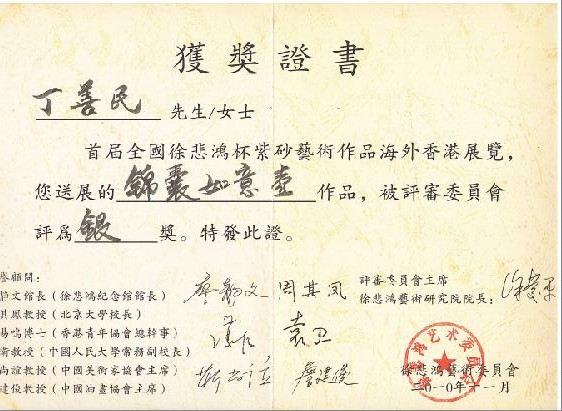 獲獎證書
丁善民 先生/女士
首届全國徐悲鴻杯紫砂藝術作品海外香港展覽，
您送展的錦囊如意壺作品，被評審委員會
評爲銀獎。特發此證。
譽顧問：
静文館長（徐悲鴻紀念館館長）
其鳳教授（北京大學校長）
易鳴博士（香港青年協會總幹事）
衛教授（中國人民大學常務副校長）
尚誼教授（中國美術家協會主席）
建俊教授（中國油畫協會主席）
廖静文 周其鳳
袁卫
靳尚谊 詹建俊
評審委員會主席
徐悲鴻藝術研究院院長：
徐悲鴻藝術委員會
二〇一〇年十一月